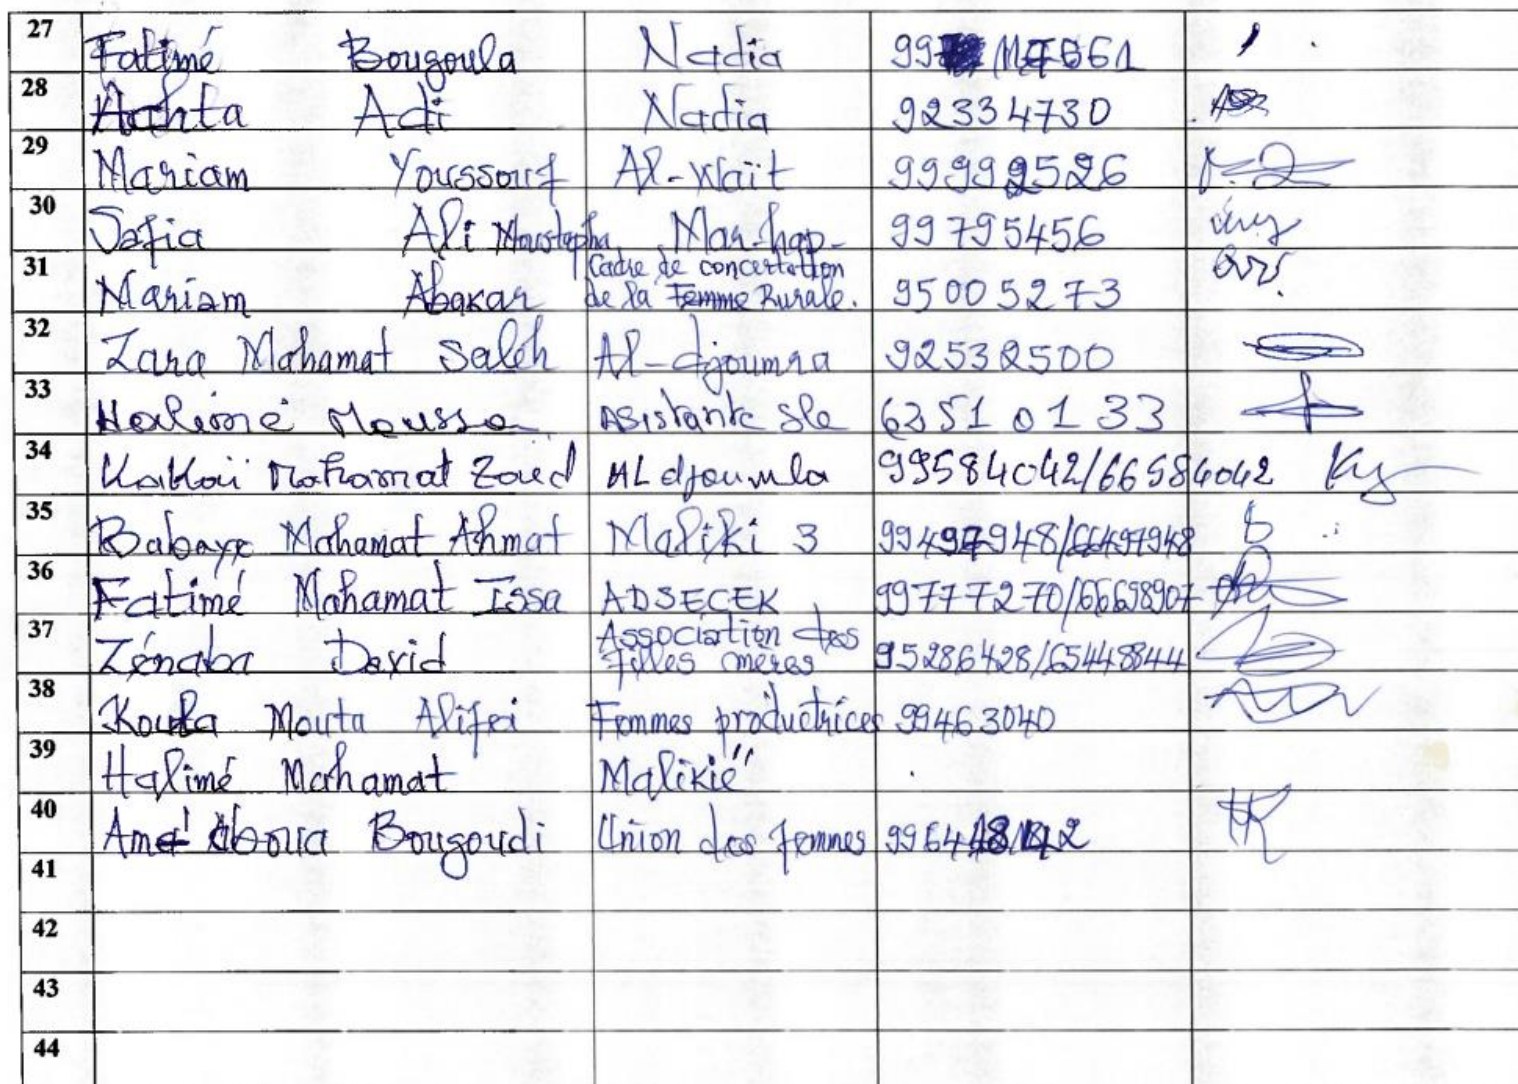 27 Fatimé Bougoula Nadia
28 Achta Adi Nadia 92334730
29 Mariam Youssouf Al-Waït 99992526
30 Safia Ali Moustapha Mar-hap- 99795456
31 Mariam Abakar Cadre de concertation de la Femme Rurale. 95005273
32 Zara Mahamat Saleh Al-djoumra 92532500
33 Halimé Moussa Assistante Sle 63510133
34 Mahamat Zoued AL djoumla 99584042/66584042
35 Babaye Mahamat Ahmat Maliki 3 99497948/66497948
36 Fatimé Mahamat Issa ADSECEK 99777270/66698907
37 Zénaba David Association des filles mères 95286428/65448844
38 Koula Mouta Alifei Femmes productrices 99463040
39 Halimé Mahamat Malikié"
40 Bougoudi Union des femmes
41
42
43
44